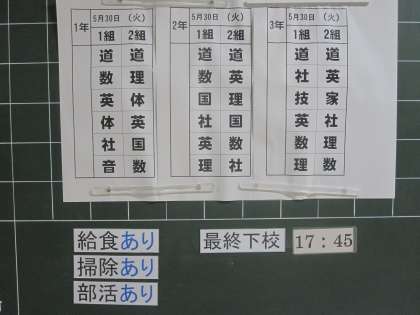 1年 5月30日 (火)
1組 2組
道 道
数 理
英 体
体 英
社 国
音 数
2年 5月30日 (火)
1組 2組
道 道
数 英
国 理
社 国
英 数
理 社
3年 5月30日 (火)
1組 2組
道 道
社 英
技 家
英 社
数 理
理 数
給食あり
掃除あり
部活あり
最終下校 17:45